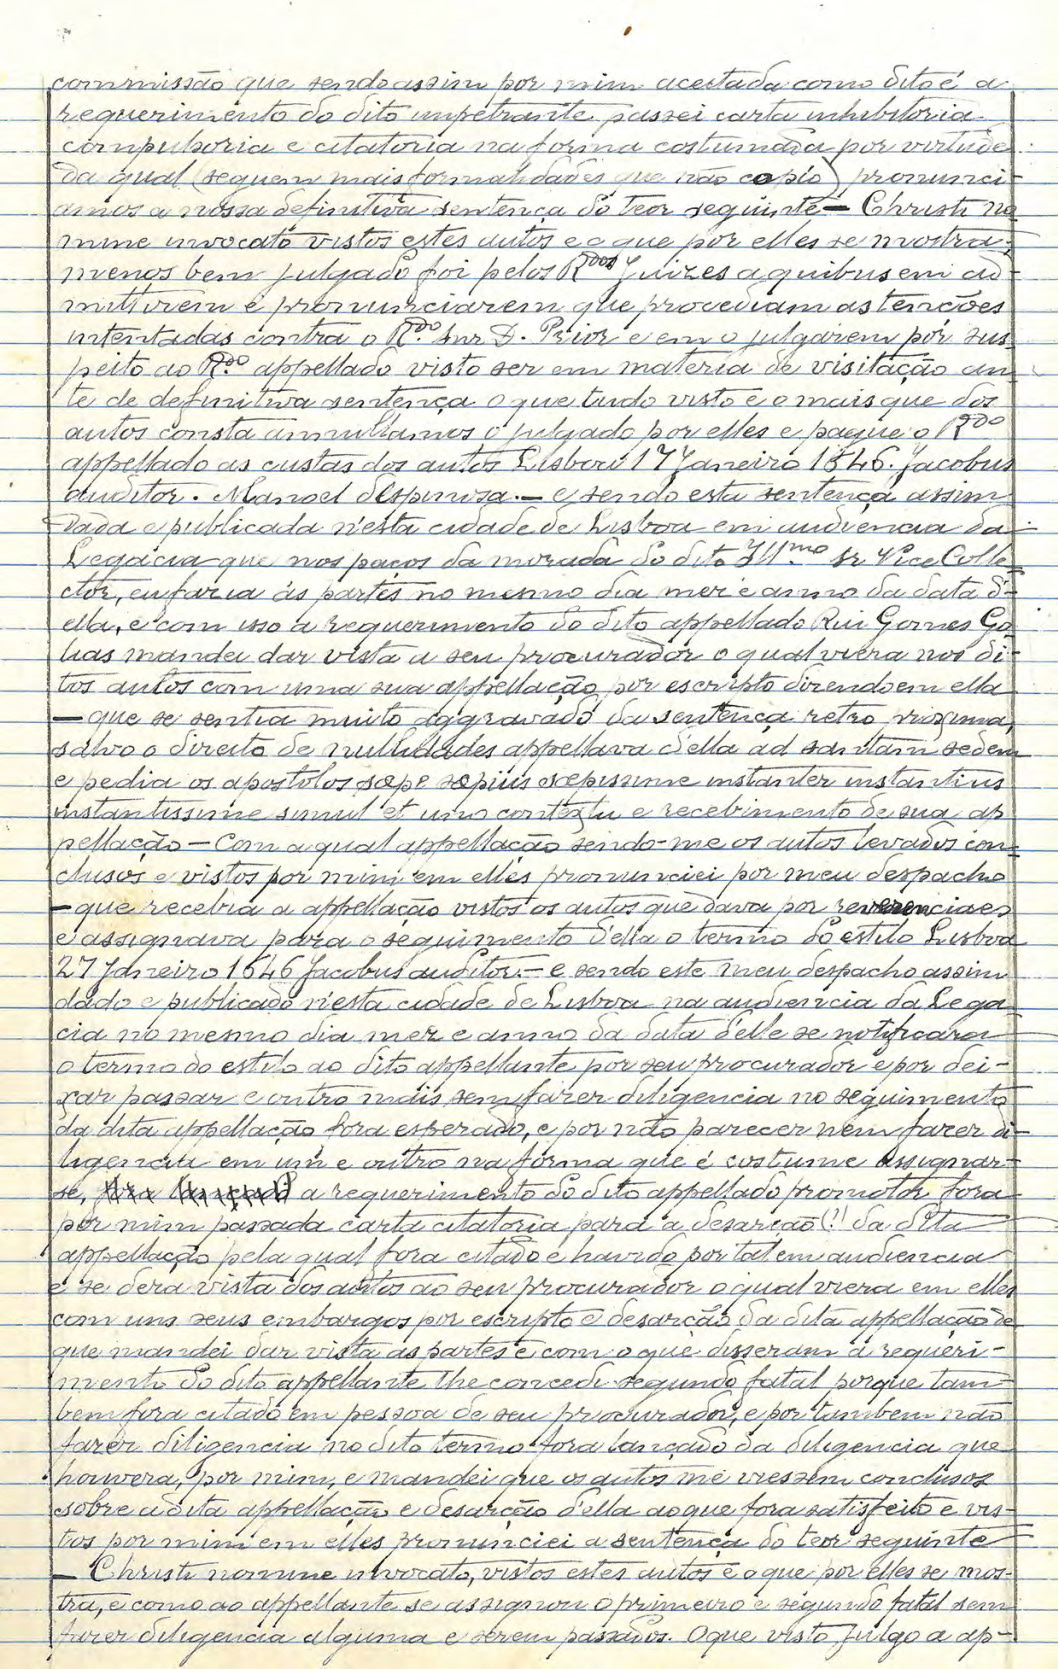 commissão que sendo assim por mim aceitada como dito é a
requerimento do dito impetrante passei carta inhibitoria
compulsoria e citatoria na forma costumada por virtude
da qual (seguem mais formalidades que não copío) pronunci-
amos a nossa definitiva sentença do teor seguinte — Christi no
mine invocato vistos estes autos e o que por elles se mostra,
menos bem julgado foi pelos R.dos Juizes a quibus em ad-
mittirem e pronunciarem que procediam as tenções
intentadas contra o R.do Snr D. Prior e em o julgarem por sus
peito ao R.do appellado visto ser em materia de visitação an
te de definitiva sentença o que tudo visto e o mais que dos
autos consta annullamos o julgado por elles e pague o R.do
appellado as custas dos autos Lisboa 17 Janeiro 1646. Jacobus
auditor. Manoel d'Espinosa. — e sendo esta sentença assim
dada e publicada n'esta cidade de Lisboa em audiencia da
Legacia que nos paços da morada do dito Ill.mo Sr Vice Colle-
ctor, eu fazia ás partes no mesmo dia mez e anno da data d'-
ella, e com isso a requerimento do dito appellado Rui Gomes Go
lias mandei dar vista a seu procurador o qual viera nos di-
tos autos com uma sua appellação por escripto dizendo em ella
— que se sentia muito aggravado da sentença retro proxima,
salvo o direito de nullidades appellava d'ella ad santam sedem
e pedia os apostolos sæpe sæpius sæpissime instanter instantius
instantissime simul et uno contextu e recebimento de sua ap
pellação — Com a qual appellação sendo-me os autos levados con-
clusos e vistos por mim em elles pronunciei por meu despacho
— que recebia a appellação vistos os autos que dava por reverenciaes
e assignava para o seguimento d'ella o termo do estilo Lisboa
27 Janeiro 1646 Jacobus auditor. — e sendo este meu despacho assim
dado e publicado n'esta cidade de Lisboa na audiencia da Lega
cia no mesmo dia mez e anno da data d'elle se notificara
o termo do estilo ao dito appellante por seu procurador e por dei-
xar passar e outro mais sem fazer diligencia no seguimento
da dita appellação fora esperado, e por não parecer nem fazer di-
ligencia em um e outro na forma que é costume assignar-
se, a requerimento do dito appellado promotor fora
por mim passada carta citatoria para a desarcão (!) da dita
appellação pela qual fora citado e havido por tal em audiencia
e se dera vista dos autos ao seu procurador o qual viera em elles
com uns seus embargos por escripto e desarção da dita appellação de
que mandei dar vista ás partes e com o que disseram á requeri-
mento do dito appellante lhe concedi segundo fatal porque tam-
bem fora citado em pessoa de seu procurador, e por tambem não
fazer diligencia no dito termo fora lançado da diligencia que
houvera, por mim, e mandei que os autos me viessem conclusos
sobre a dita appellação e desarção d'ella ao que fora satisfeito e vis-
tos por mim em elles pronunciei a sentença do teor seguinte
— Christi nomine invocato, vistos estes autos e o que por elles se mos-
tra, e como ao appellante se assignou o primeiro e segundo fatal sem
fazer diligencia alguma e serem passados. O que visto julgo a ap-